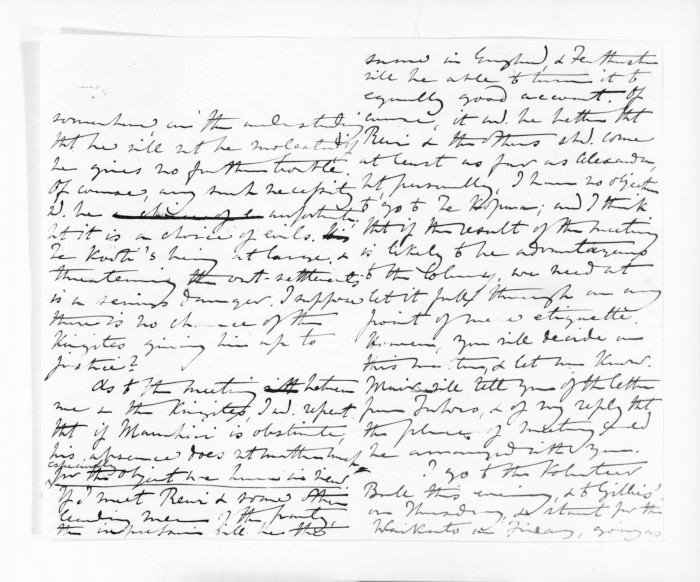 somewhere, on the understanding
that he will not be molested if
he gives no further trouble.
Of course, any such necessity
wd. be unfortunate
but it is a choice of evils.
Te Kooti's being at large, &
threatening the out-settlements
is a serious danger. I suppose
there is no chance of the
Kingites giving him up to
justice?
As to the meeting between
me & the Kingites, I wd. repeat
that if Manuhiri is obstinate,
his absence does not matter much
especially
for the object we have in view.
If I meet Rewi & some other
leading men of the party,
the impression will be the
same in England, & Featherston
will be able to turn it to
equally good account. Of
course, it wd. be better that
Rewi & the others shd. come
at least as far as Alexandra
but, personally, I have no objection
to go to Te Kopua; and I think
that if the result of the meeting
is likely to be advantageous
to the Colony, we need not
let it fall through on any
point of mere etiquette.
However, you will decide on
this matter, & let me know.
Mair will tell you of the letter
from & of my reply that
the place of meeting wd
be arranged with you.
I go to the Volunteer
Ball this evening, & to Gillies'
on Thursday, & start for the
Waikato on Friday, going as